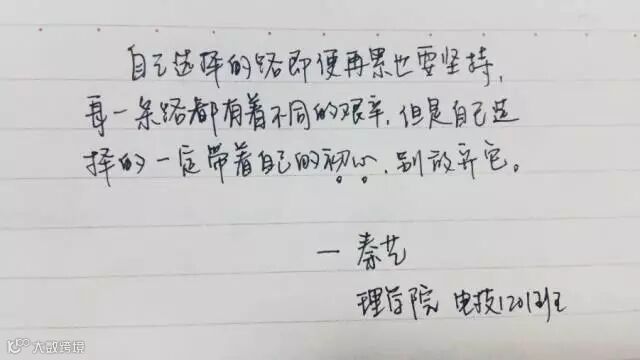 自己选择的路即便再累也要坚持，
每一条路都有着不同的艰辛，但是自己选
择的一定带着自己的初心，别放弃它。
— 秦艺
理学院 电技1201班
大数跨境